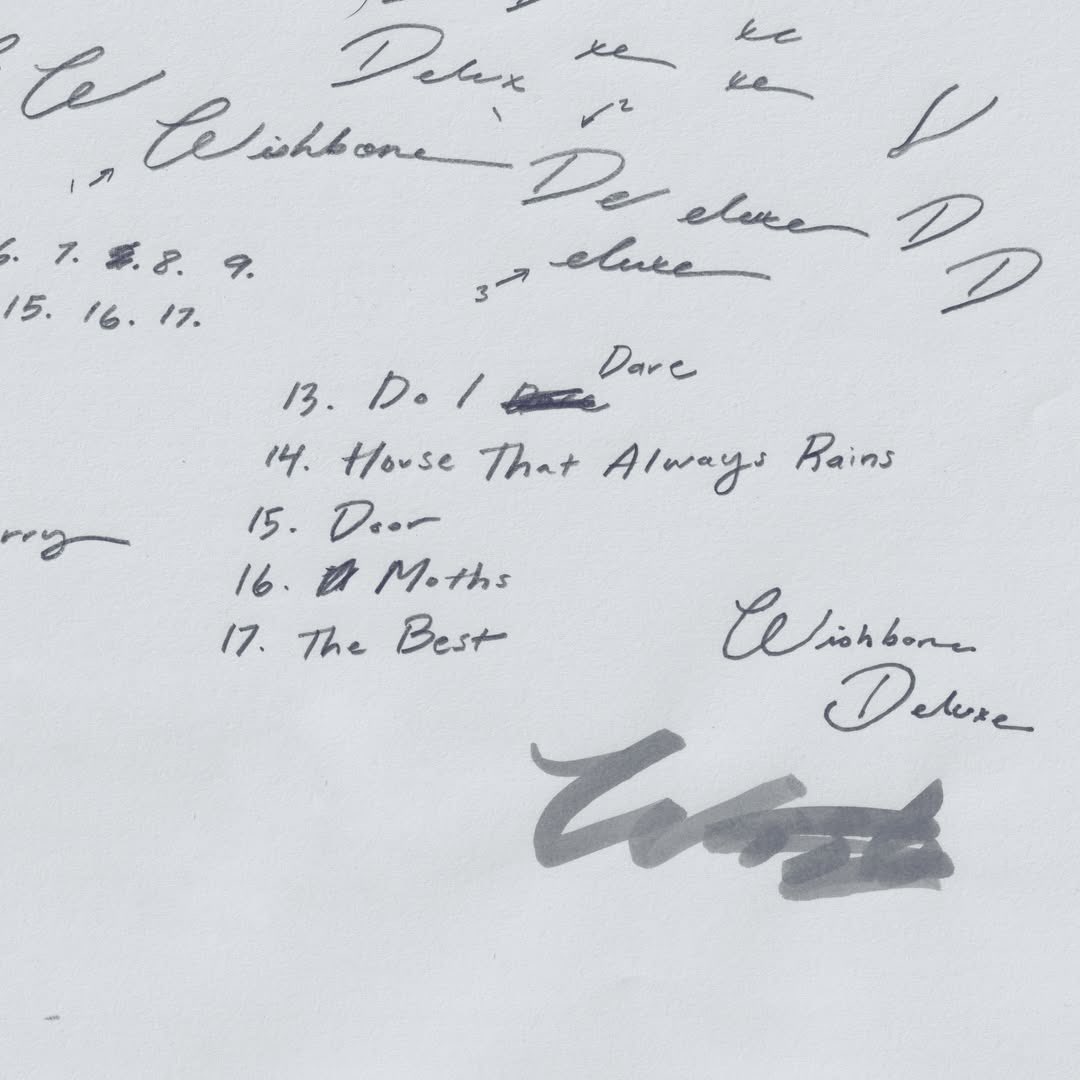 W
Delux xe xe
xe
Wishbone
1
2
De eluxe D
D
3 eluxe
6. 7. 8. 9.
15. 16. 17.
13. Do I Dare
14. House That Always Rains
15. Door
rry
16. Moths
17. The Best
Wishbone
Deluxe